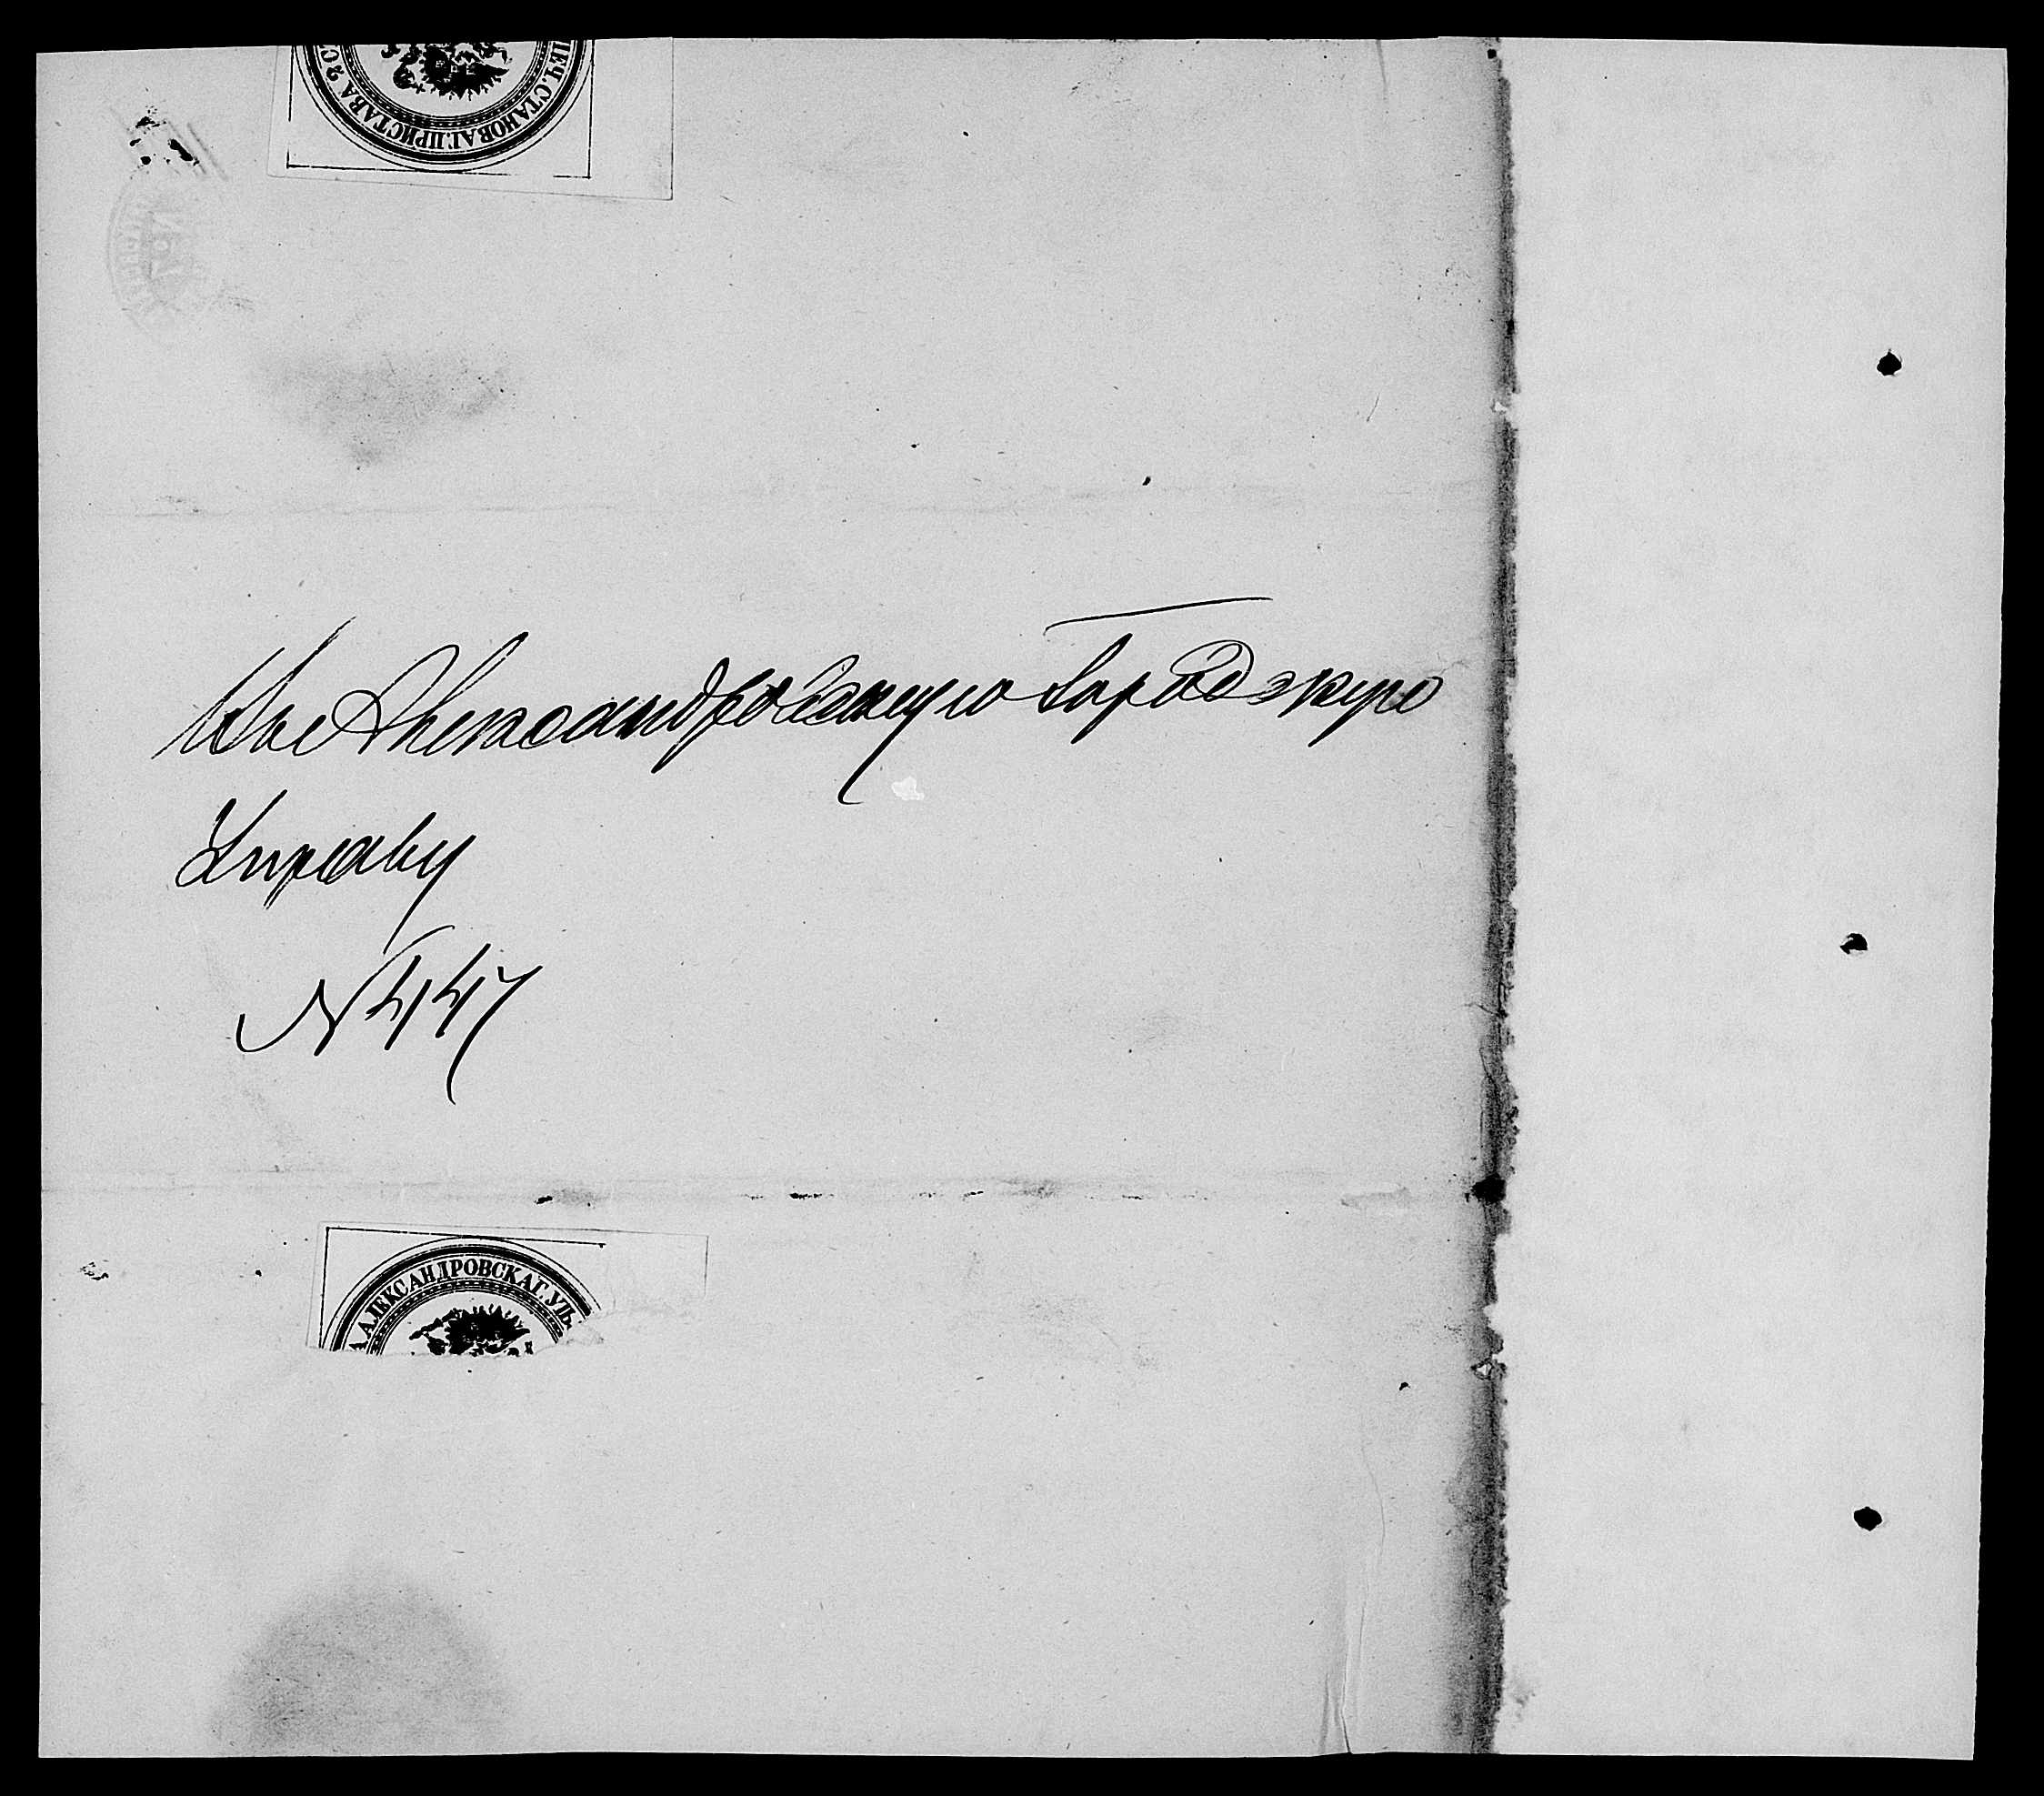 ПЕЧ. СТАНОВАГ. ПРИСТАВА 2 С
Въ Александровскую Городскую
Управу
N 447
А АЛЕКСАНДРОВСКАГ. УѢ